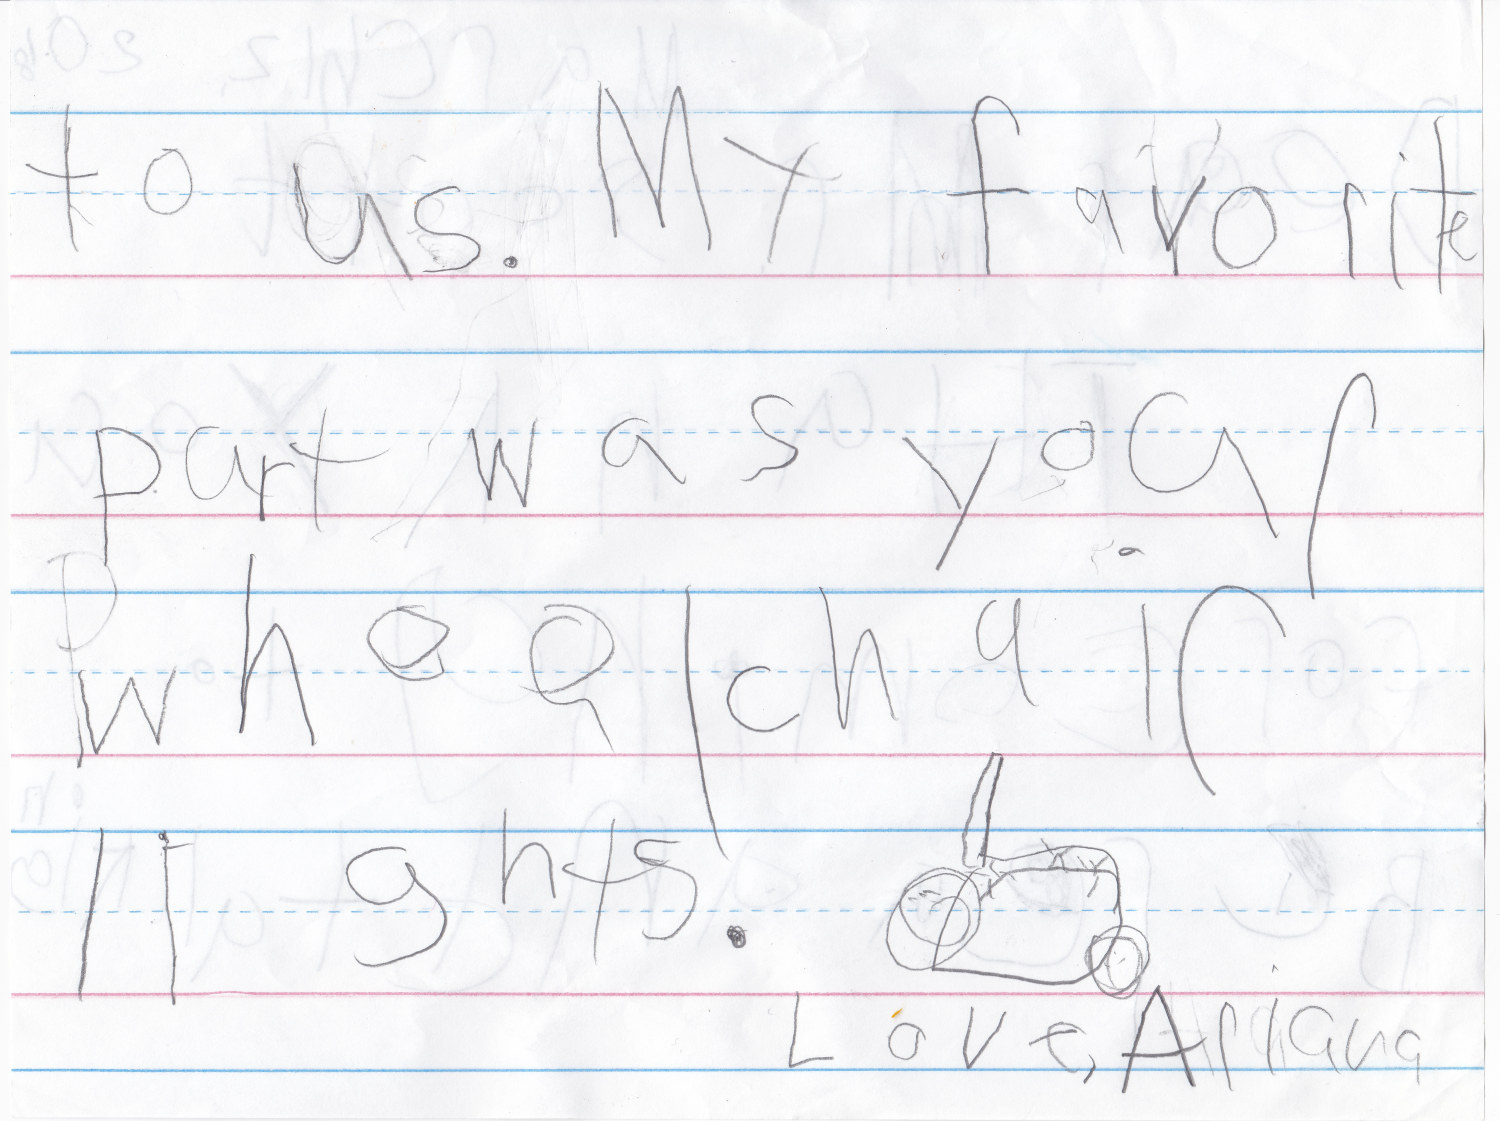 to us. My favorite
part was yoar
wheelchair
lights.
Love, Ariana